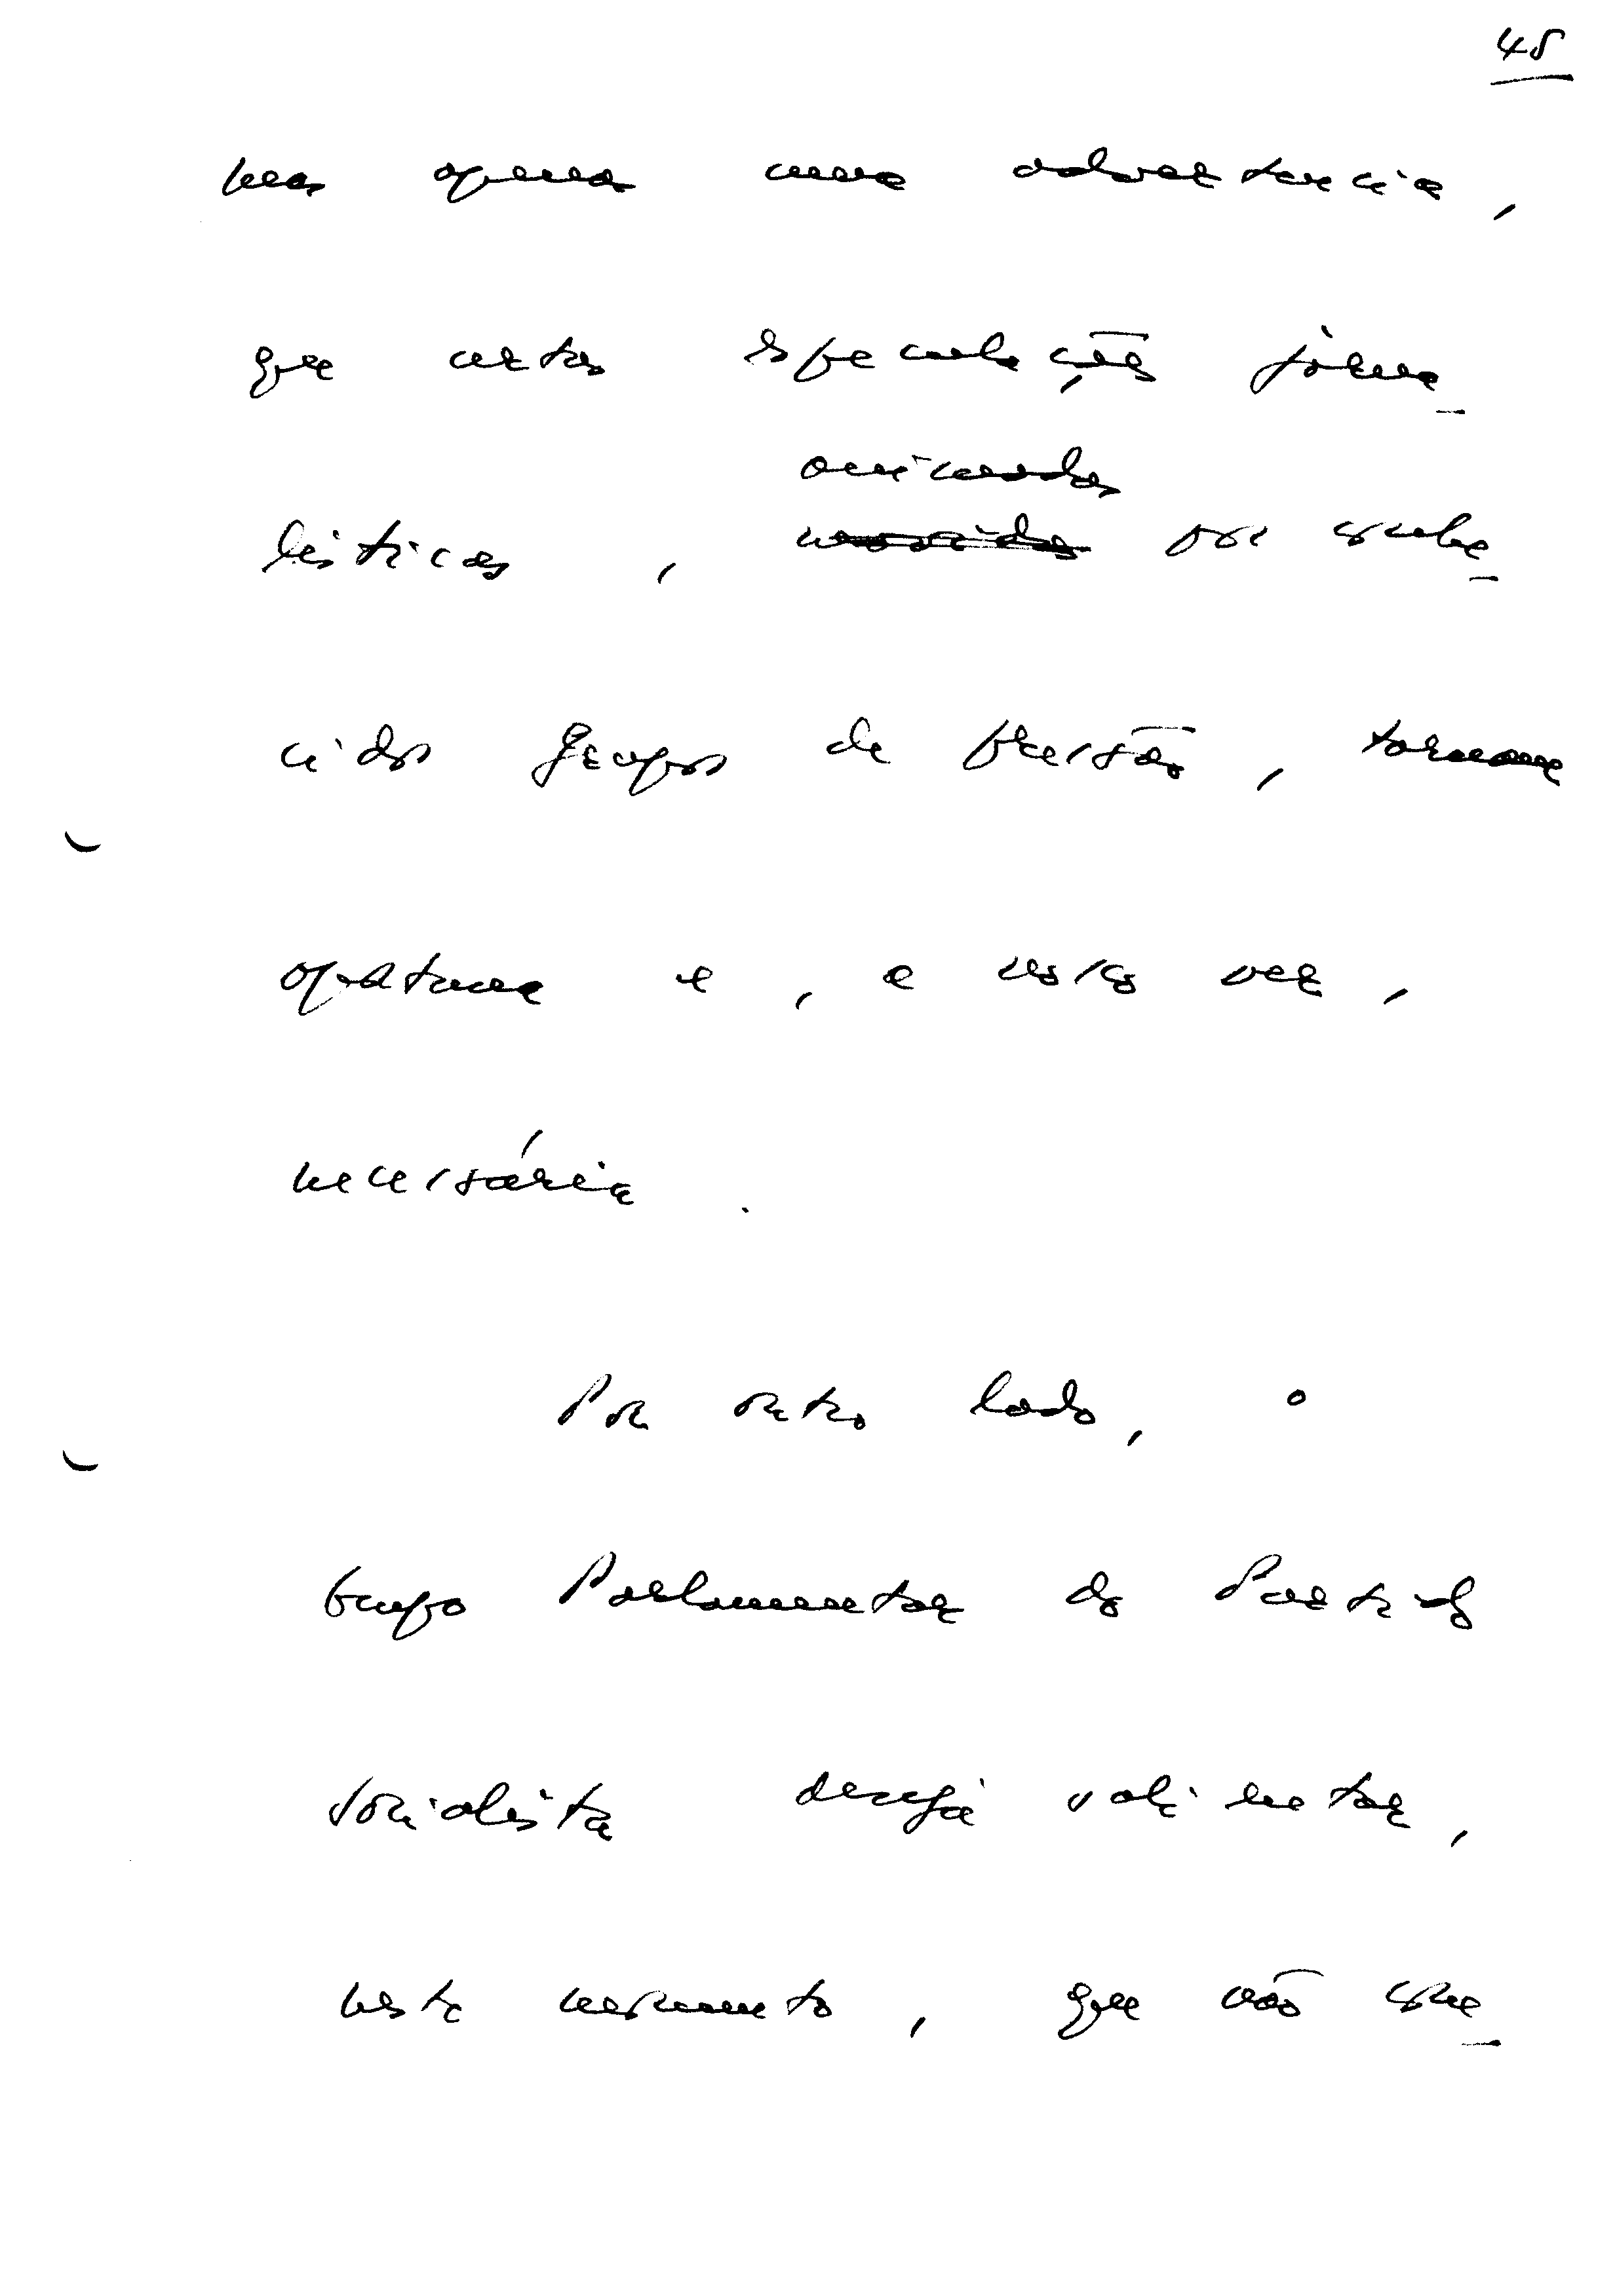 45
mas apenas uma advertencia,
que certas especulações jorna_
lísticas, animadas
por conhe_
cidos grupos de pressão, tornam
oportuna e, a nosso ver,
necessária.
Por outro lado, o
Grupo Parlamentar do Partido
Socialista deseja salientar,
neste momento, que não con_